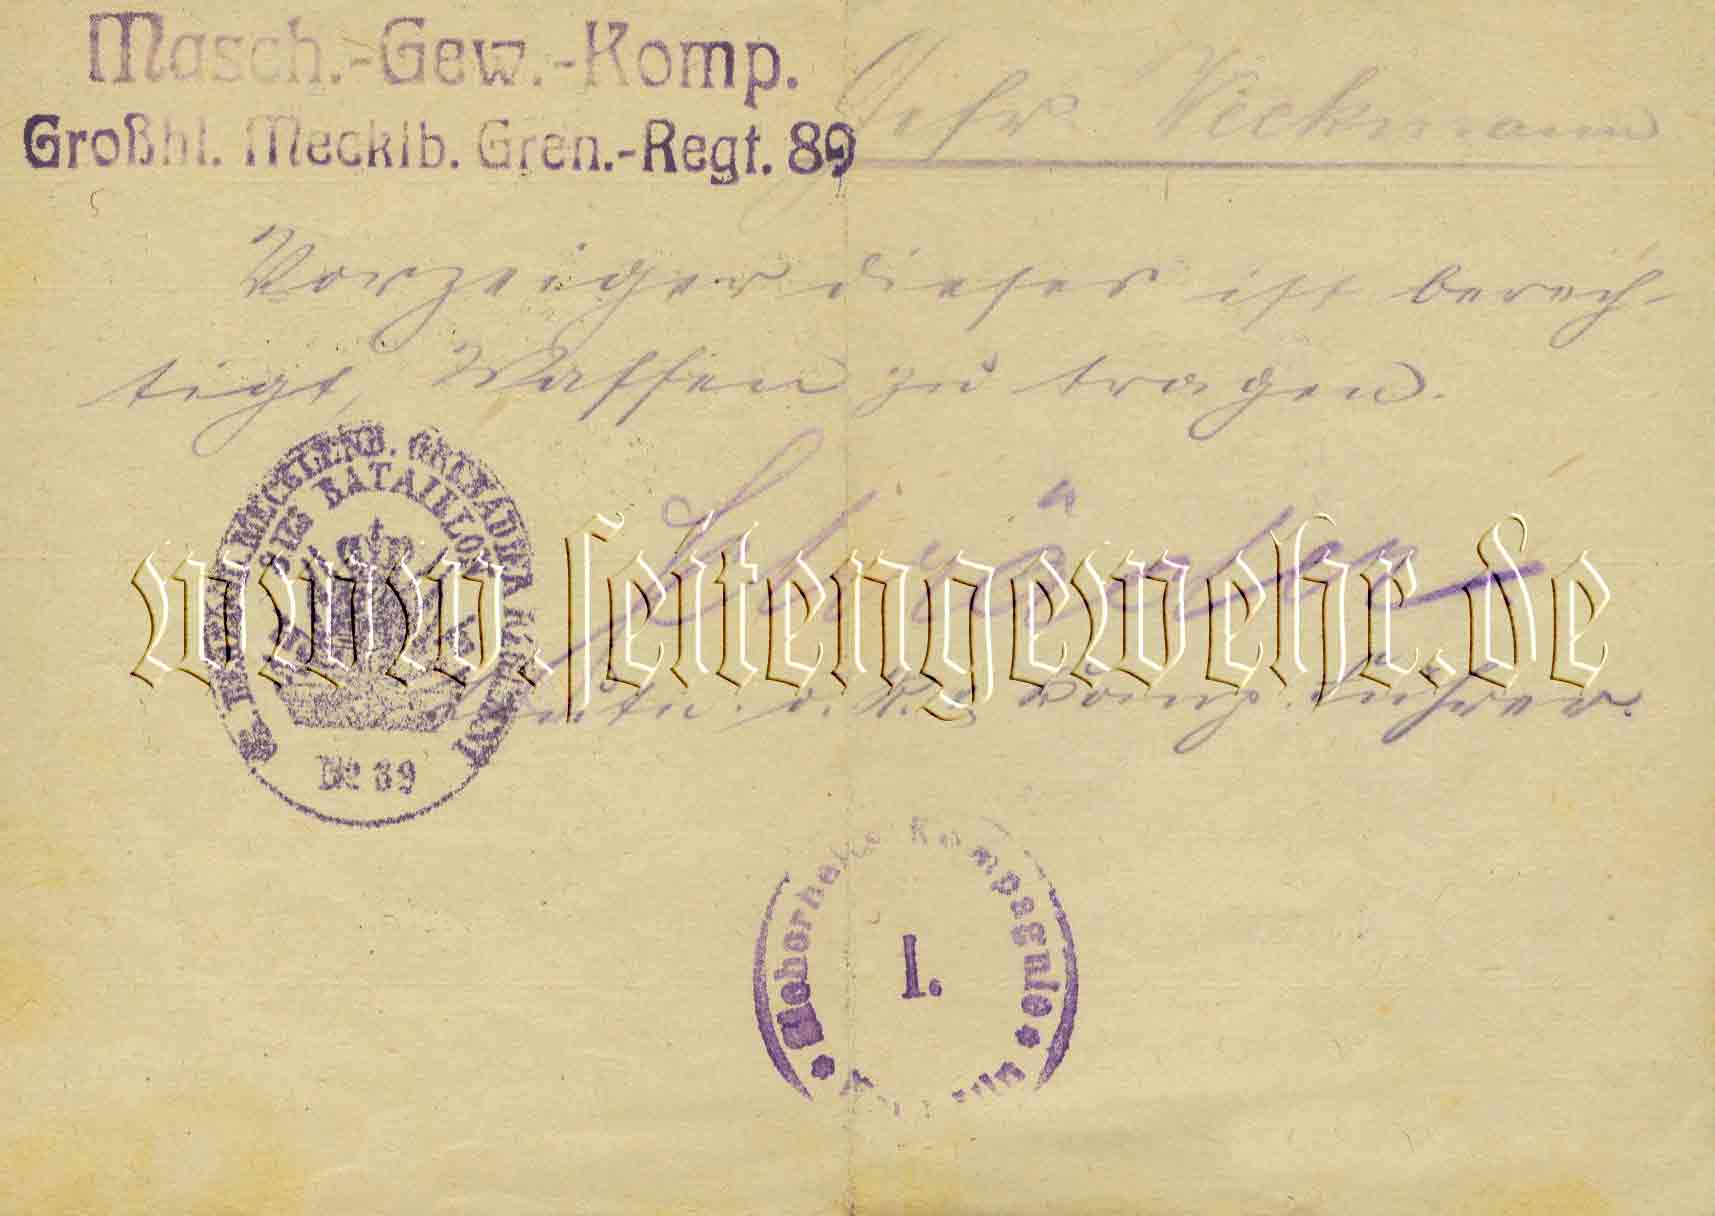 Masch.-Gew.-Komp.
Großhl. Mecklb. Gren.-Regt. 89
Gefr. Wiekmann
Vorzeiger dieses ist berech-
tigt, Waffen zu tragen.
MECKLENB. GRENADIER REGIMENT
BATAILLON
No 89
www.seitengewehr.de
Leutn. d. R. u. Komp. Führer.
Kompagnie
1.